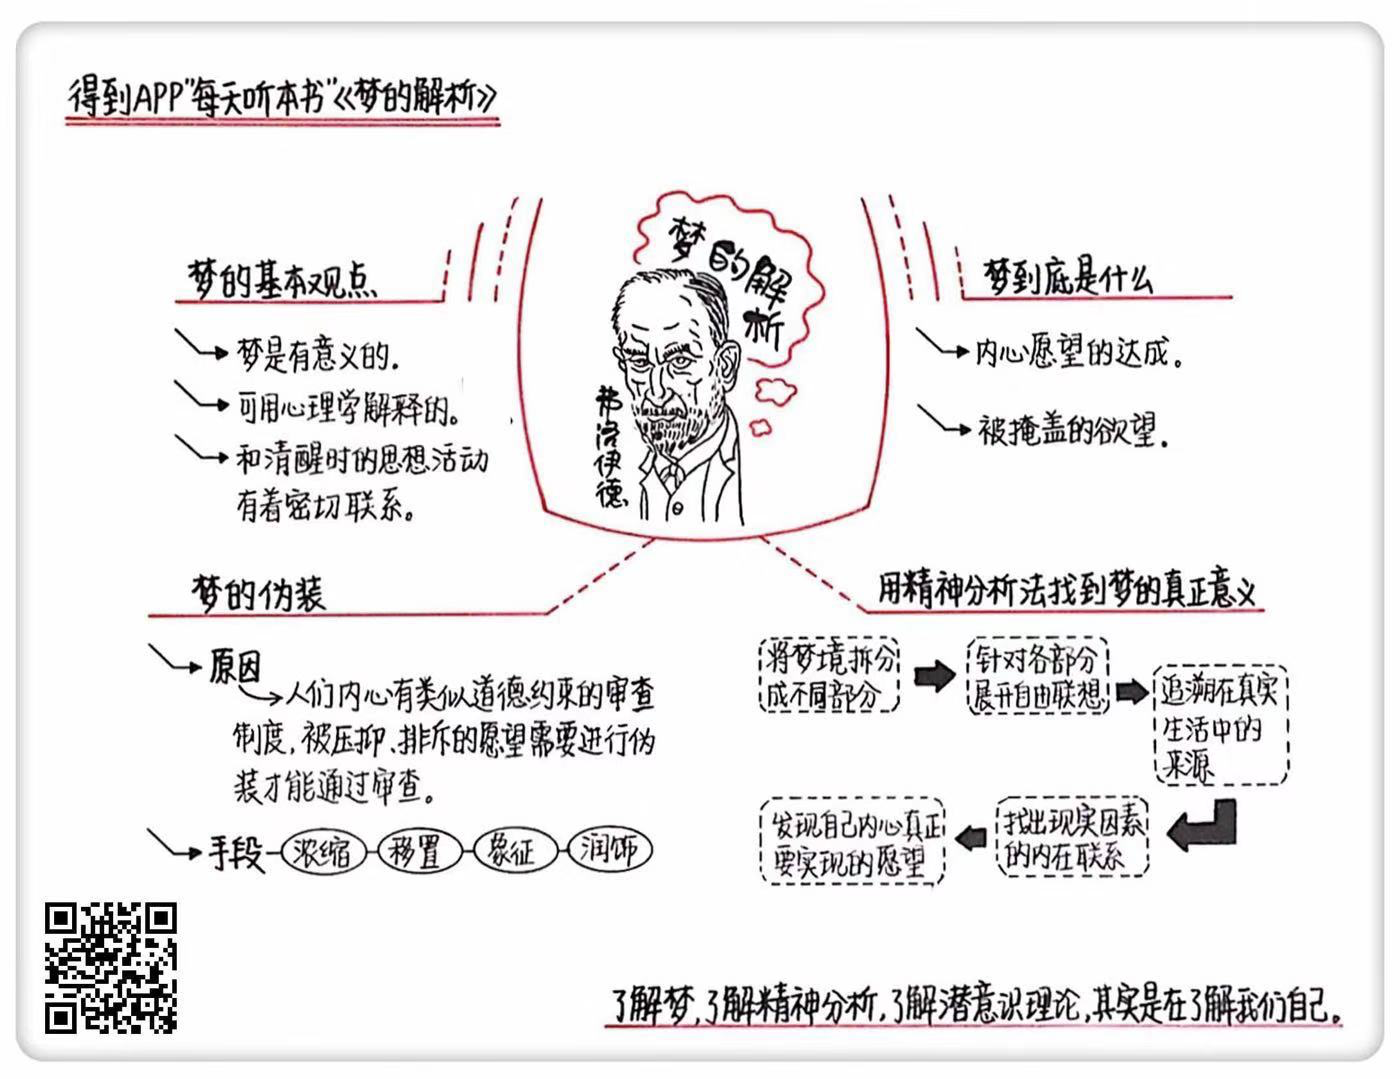 得到APP"每天听本书"《梦的解析》
梦的解析
弗洛伊德
梦的基本观点
梦是有意义的.
可用心理学解释的。
和清醒时的思想活动
有着密切联系。
梦到底是什么
内心愿望的达成。
被掩盖的欲望.
梦的伪装
原因
人们内心有类似道德约束的审查
制度,被压抑、排斥的愿望需要进行伪
装才能通过审查。
手段 浓缩 移置 象征 润饰
用精神分析法找到梦的真正意义
将梦境拆分
成不同部分
针对各部分
展开自由联想
追溯在真实
生活中的
来源
找出现实因素
的内在联系
发现自己内心真正
要实现的愿望
了解梦,了解精神分析,了解潜意识理论,其实是在了解我们自己。